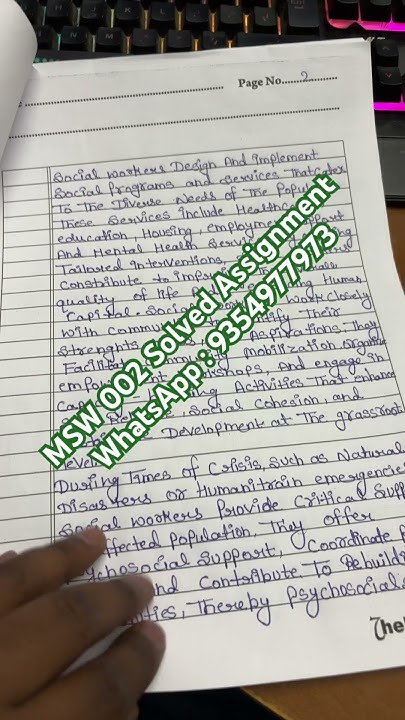 Page No. 2
Social workers Design And implement
Social Programs and Services That Cater
To The Diverse Needs of The Popul
These Services include Health
education, Housing, employm support
And Mental Health Serv
Tailored interventions,
Contribute to imp
quality of life Human
Capital. Social work Closely
with commun Their
Strenghts Aspirations. They
Facilit mobilization, organize
emp shops, And engage in
Cap Activities That enhance
Social Cohesion, and
Development at The grassroot
level
During Times of Crisis, Such as Natural
Disasters or Humanitrain emergencies
Social workers Provide Critical Supp
ffected Population, They offer
ychosocial Support, Coordinate
nd Contribute To Rebuildi
ities, Thereby Psychosocial
The
MSW 002 Solved Assignment
WhatsApp :9354977973